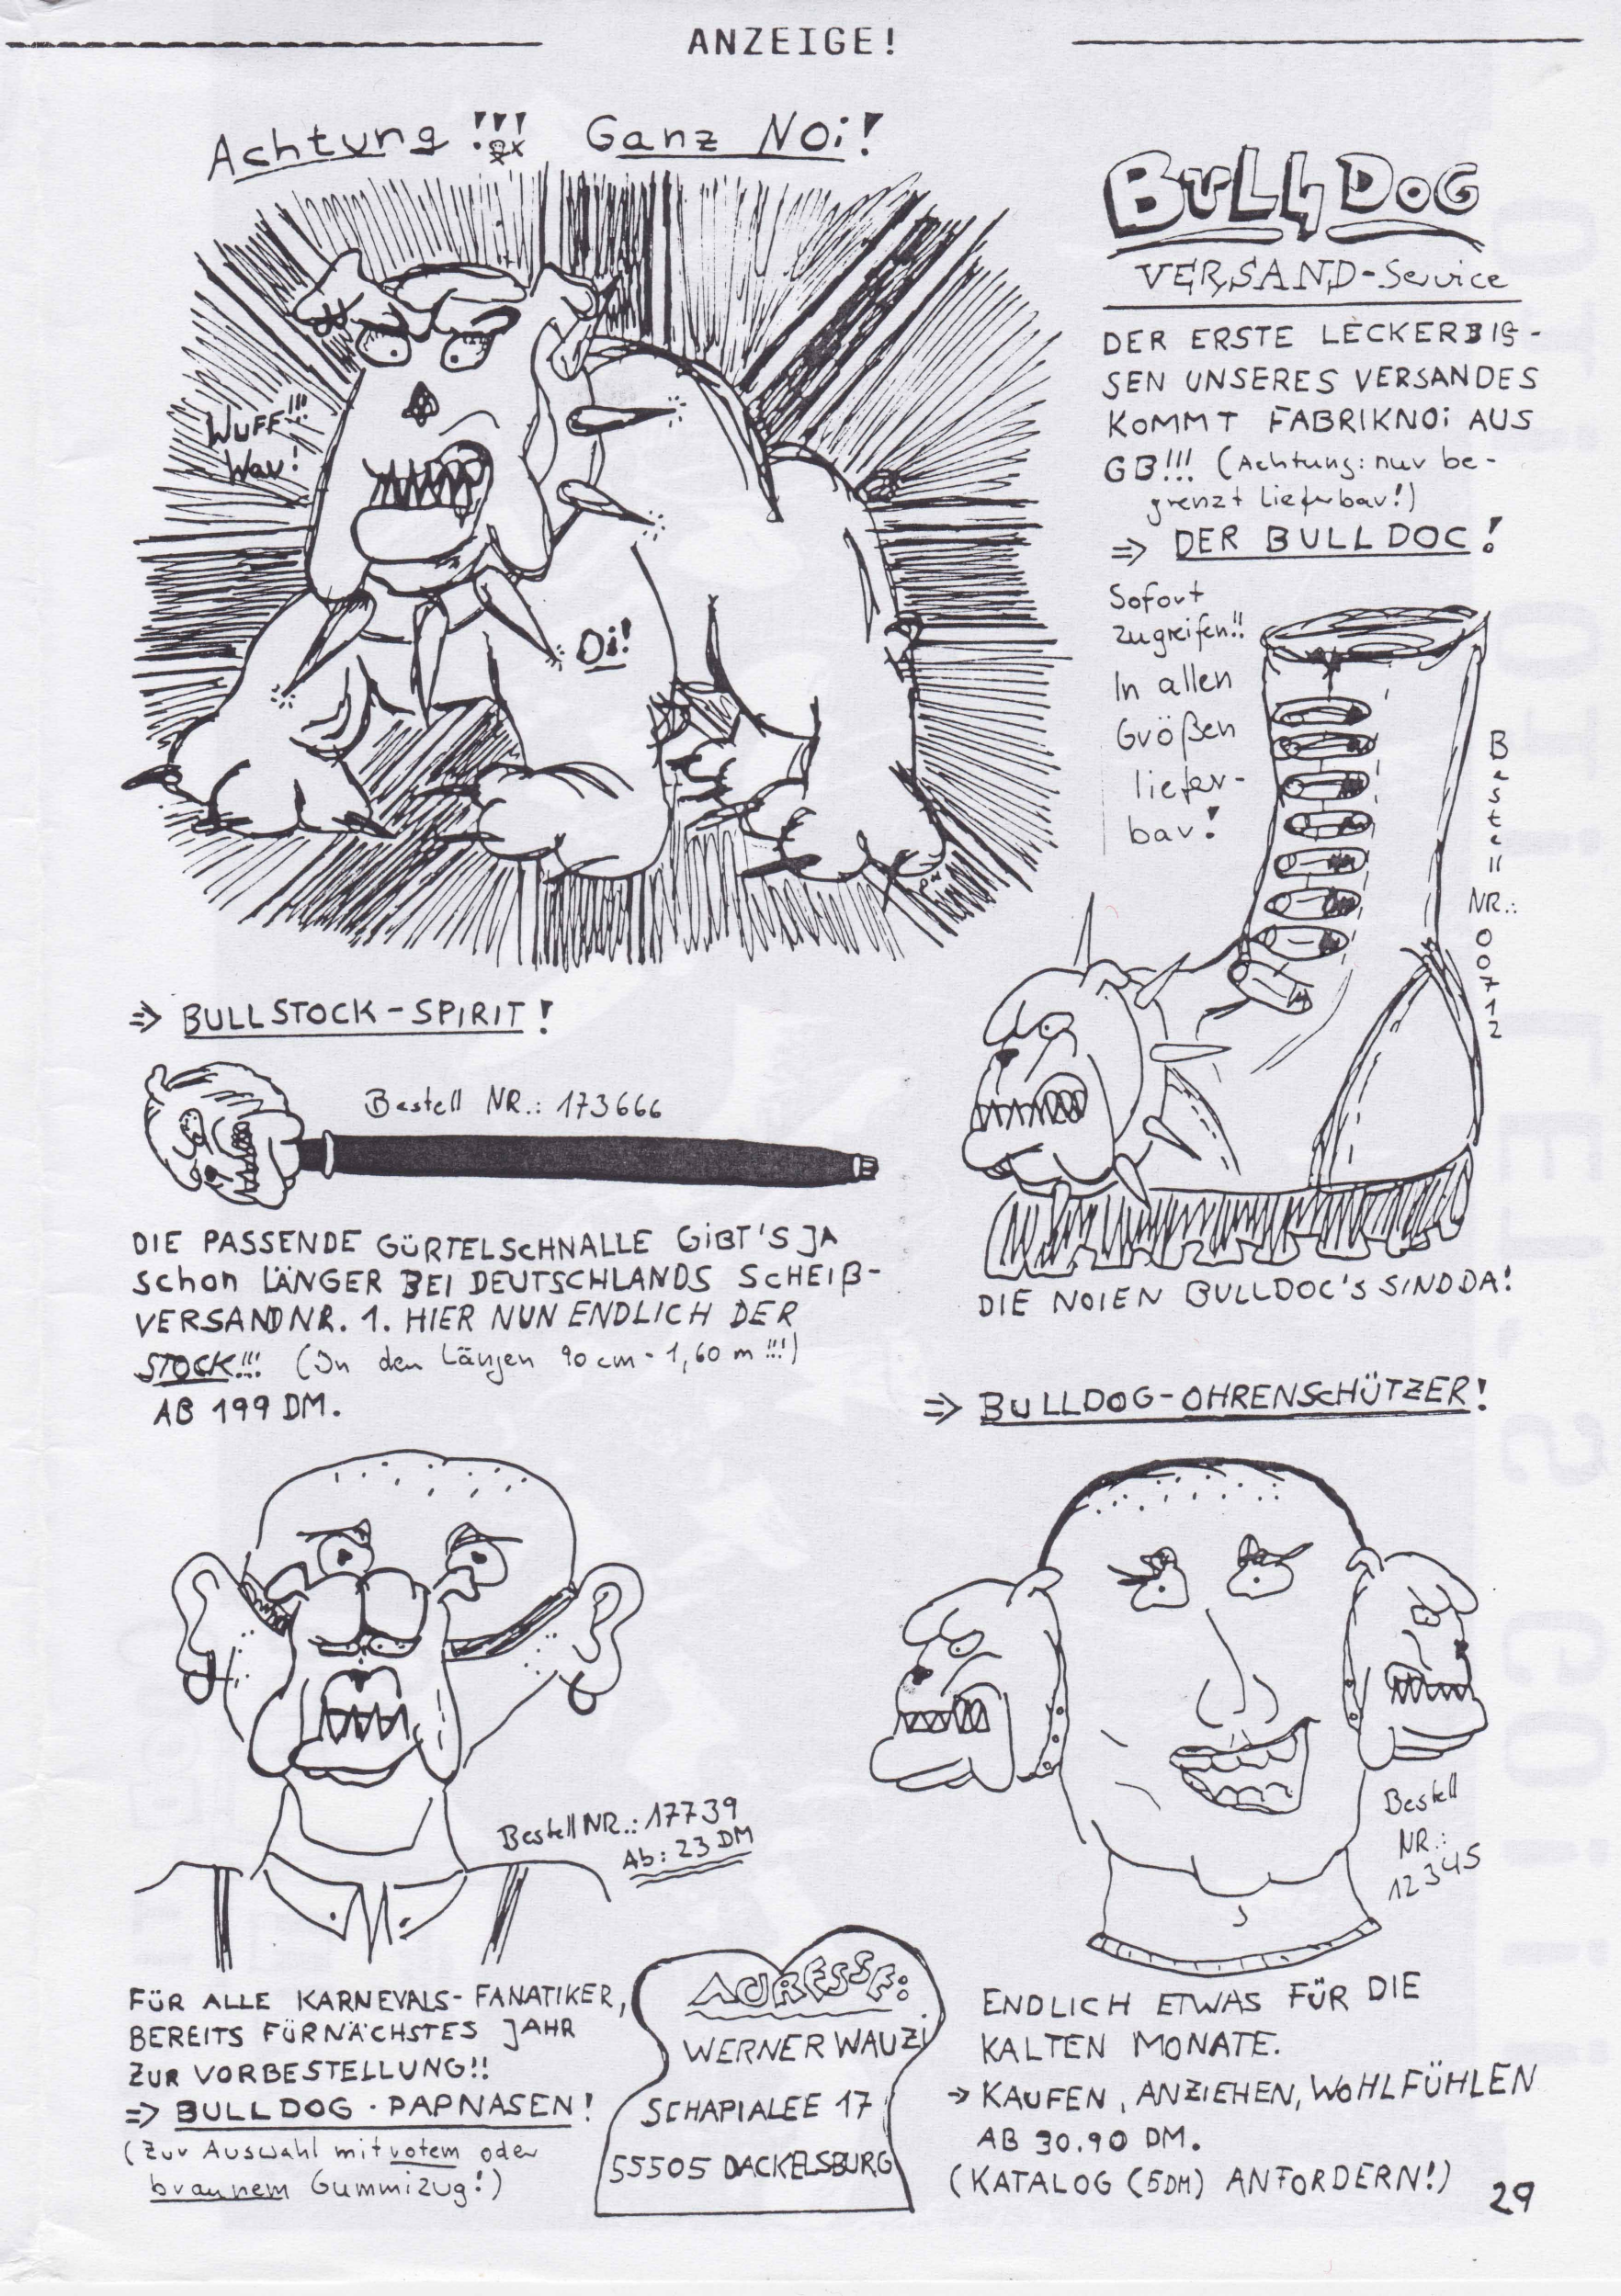 ANZEIGE!
Achtung!!!! Ganz Noi!
BULLDOG
VERSAND-Service
DER ERSTE LECKERBIS-
SEN UNSERES VERSANDES
KOMMT FABRIKNOI AUS
GB!!! (Achtung: nur be-
grenzt lieferbar!)
⇒ DER BULLDOC!
Wuff!!!
Wau!
Oi!
Sofort
zugreifen!!
In allen
Größen
liefer-
bar!
Bestell NR.: 00712
DIE NOIEN BULLDOC's SIND DA!
⇒ BULLSTOCK-SPIRIT!
Bestell NR.: 173666
DIE PASSENDE GÜRTELSCHNALLE GIBT'S JA
schon LÄNGER BEI DEUTSCHLANDS SCHEIß-
VERSAND NR. 1. HIER NUN ENDLICH DER
STOCK!!! (In den Längen 90 cm - 1,60 m!!!)
AB 199 DM.
⇒ BULLDOG-OHRENSCHÜTZER!
Bestell NR.: 17739
Ab: 23 DM
Bestell
NR.:
12345
FÜR ALLE KARNEVALS-FANATIKER,
BEREITS FÜR NÄCHSTES JAHR
ZUR VORBESTELLUNG!!
⇒ BULLDOG-PAPNASEN!
(Zur Auswahl mit rotem oder
braunem Gummizug!)
ADRESSE:
WERNER WAUZI
SCHAPIALEE 17
55505 DACKELSBURG
ENDLICH ETWAS FÜR DIE
KALTEN MONATE.
→ KAUFEN, ANZIEHEN, WOHLFÜHLEN
AB 30.90 DM.
(KATALOG (5DM) ANFORDERN!)
29